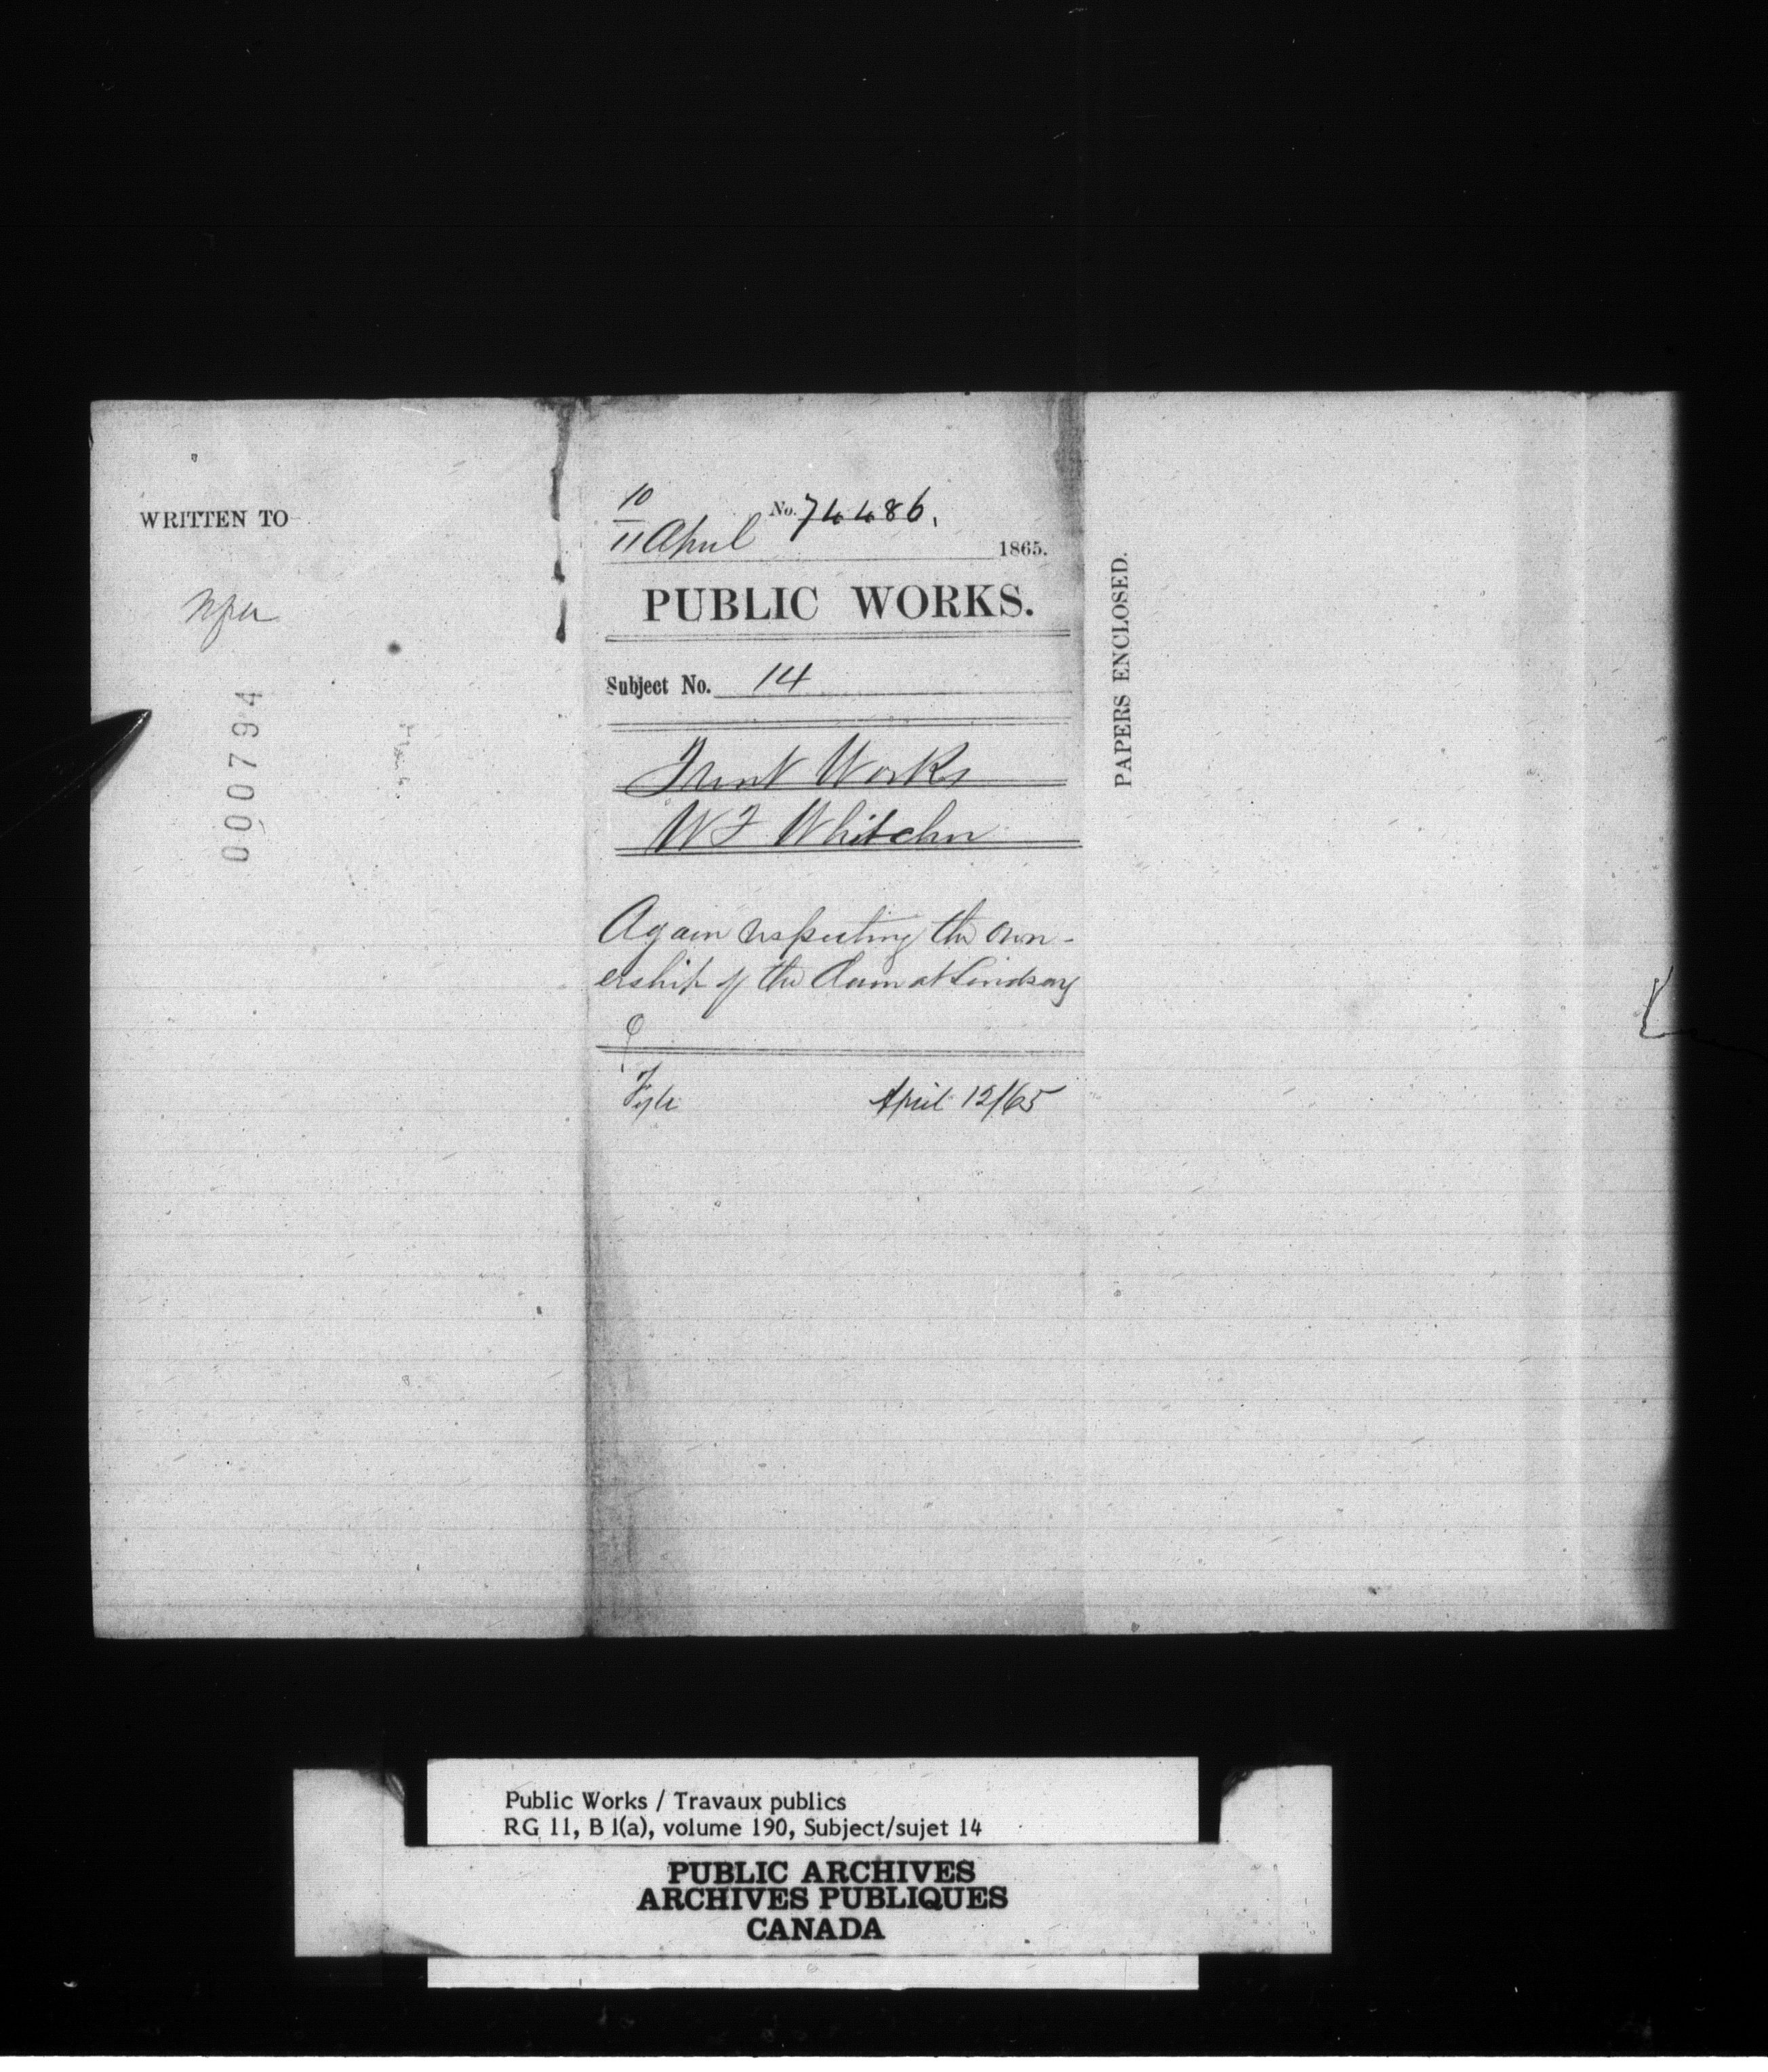 WRITTEN TO
000794
10
11 April
No. 74486.
1865.
PUBLIC WORKS.
Subject No. 14
Trent Works
W F Whitcher
Again respecting the own-
ership of the dam at Lindsay
Fyle April 12/65
PAPERS ENCLOSED.
Public Works / Travaux publics
RG 11, B 1(a), volume 190, Subject/sujet 14
PUBLIC ARCHIVES
ARCHIVES PUBLIQUES
CANADA